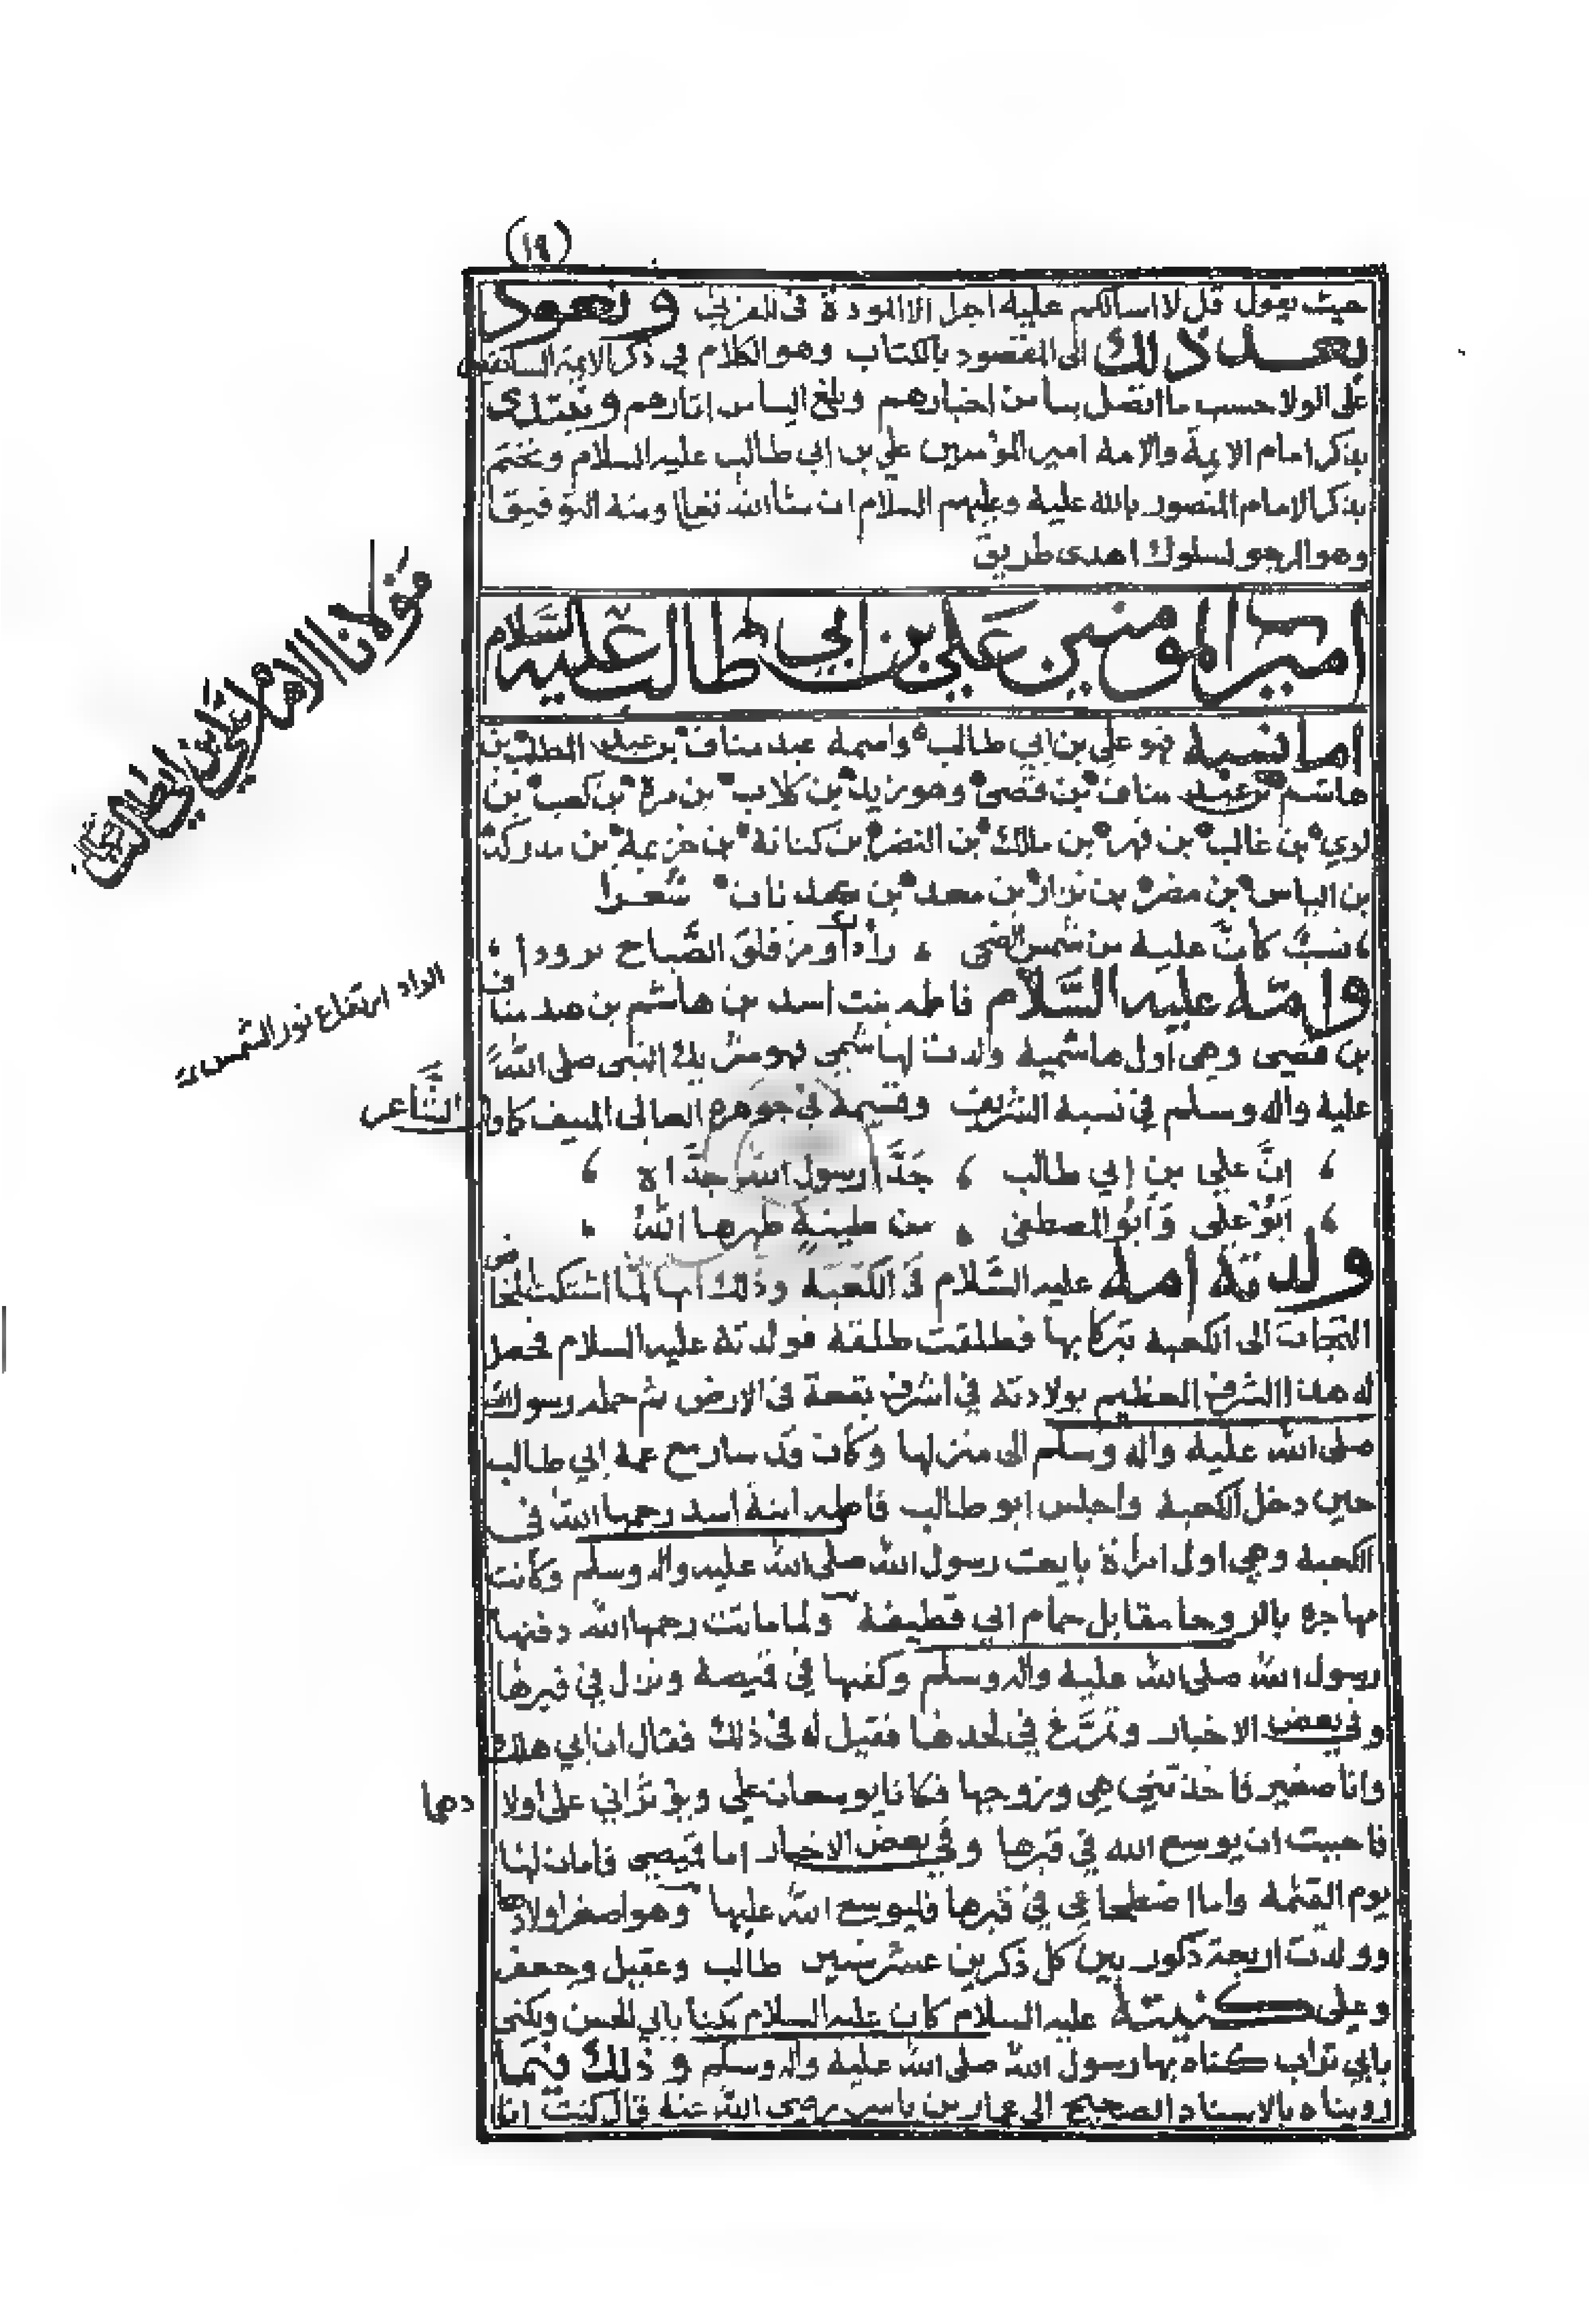 (١٩)
حيث يقول قل لا اسألكم عليه اجرا الا المودة في القربى ونعود
بعد ذلك الى المقصود بالكتاب وهو الكلام في ذكر الايمة السابقين
على الولا حسب ما اتصل بنا من اخبارهم وبلغ الينا من اثارهم ونبتدى
بذكر امام الايمة والامة امير المؤمنين علي بن ابي طالب عليه السلام ونختم
بذكر الامام المنصور بالله عليه وعليهم السلام ان شاالله تعالى ومنه التوفيق
وهو المرجو لسلوك اهدى طريق
امير المومنين علي بن ابي طالب عليه السلام
مولانا الامام علي بن ابي طالب
اما نسبه فهو علي بن ابي طالب واسمه عبد مناف بن عبد المطلب بن
هاشم بن عبد مناف بن قصي وهو زيد بن كلاب بن مرة بن كعب بن
لوي بن غالب بن فهر بن مالك بن النضر بن كنانة بن خزيمة بن مدركة
بن الياس بن مضر بن نزار بن معد بن عدنان شعرا
نسب كأن عليه من شمس الضحى رأد ومن فلق الصباح برودا
الراد ارتفاع نور الشمس
وامه عليه السلام فاطمه بنت اسد بن هاشم بن عبد مناف
بن قصي وهي اول هاشمية ولدت لهاشمي فهو شريك النبي صلى الله
عليه واله وسلم في نسبه الشريف وقسيمه في جوهره العالى المنيف كما قال الشاعر
انَّ علي بن ابي طالب ، جَدَّا رسول الله جدّاه
ابو علي وابو المصطفى ، من طينةٍ طهرها الله
ولدته امه عليه السَّلام في الكعبة وذلك انها لمّا اشتكت المخاض
التجات الى الكعبه تبركا بها فطلقت طلقة فولدته عليه السلام فحصل
له هذا الشرف العظيم بولادته في اشرف بقعة في الارض ثم حمله رسول الله
صلى الله عليه واله وسلم الى منزلها وكان قد سار مع عمه ابي طالب
حين دخل الكعبة واجلس ابو طالب فاطمه ابنة اسد رحمها الله في
الكعبة وهي اول امرأة بايعت رسول الله صلى الله عليه واله وسلم وكانت
مهاجرة بالروحا مقابل حمام ابي قطيفة ولما ماتت رحمها الله دفنها
رسول الله صلى الله عليه واله وسلم وكفنها في قميصه ونزل في قبرها
وفي بعض الاخبار وتمرَّغ في لحدها فقيل له في ذلك فقال ان ابي هلك
وانا صغير فاخذتني هي وزوجها فكانا يوسعان علي ويؤثراني على اولادهما
فاحببت ان يوسع الله في قبرها وفي بعض الاخبار اما قميصي فامان لها
يوم القيمة واما اضطجاعي في قبرها فليوسع الله عليها وهو اصغر اولادها
وولدت اربعة ذكور بين كل ذكرين عشر سنين طالب وعقيل وجعفر
وعلي كنيته عليه السلام كان عليه السلام يكنا بابي الحسن ويكنى
بابي تراب كناه بها رسول الله صلى الله عليه واله وسلم وذلك فيما
رويناه بالاسناد الصحيح الى عمار بن ياسر رضي الله عنه قال كنت انا